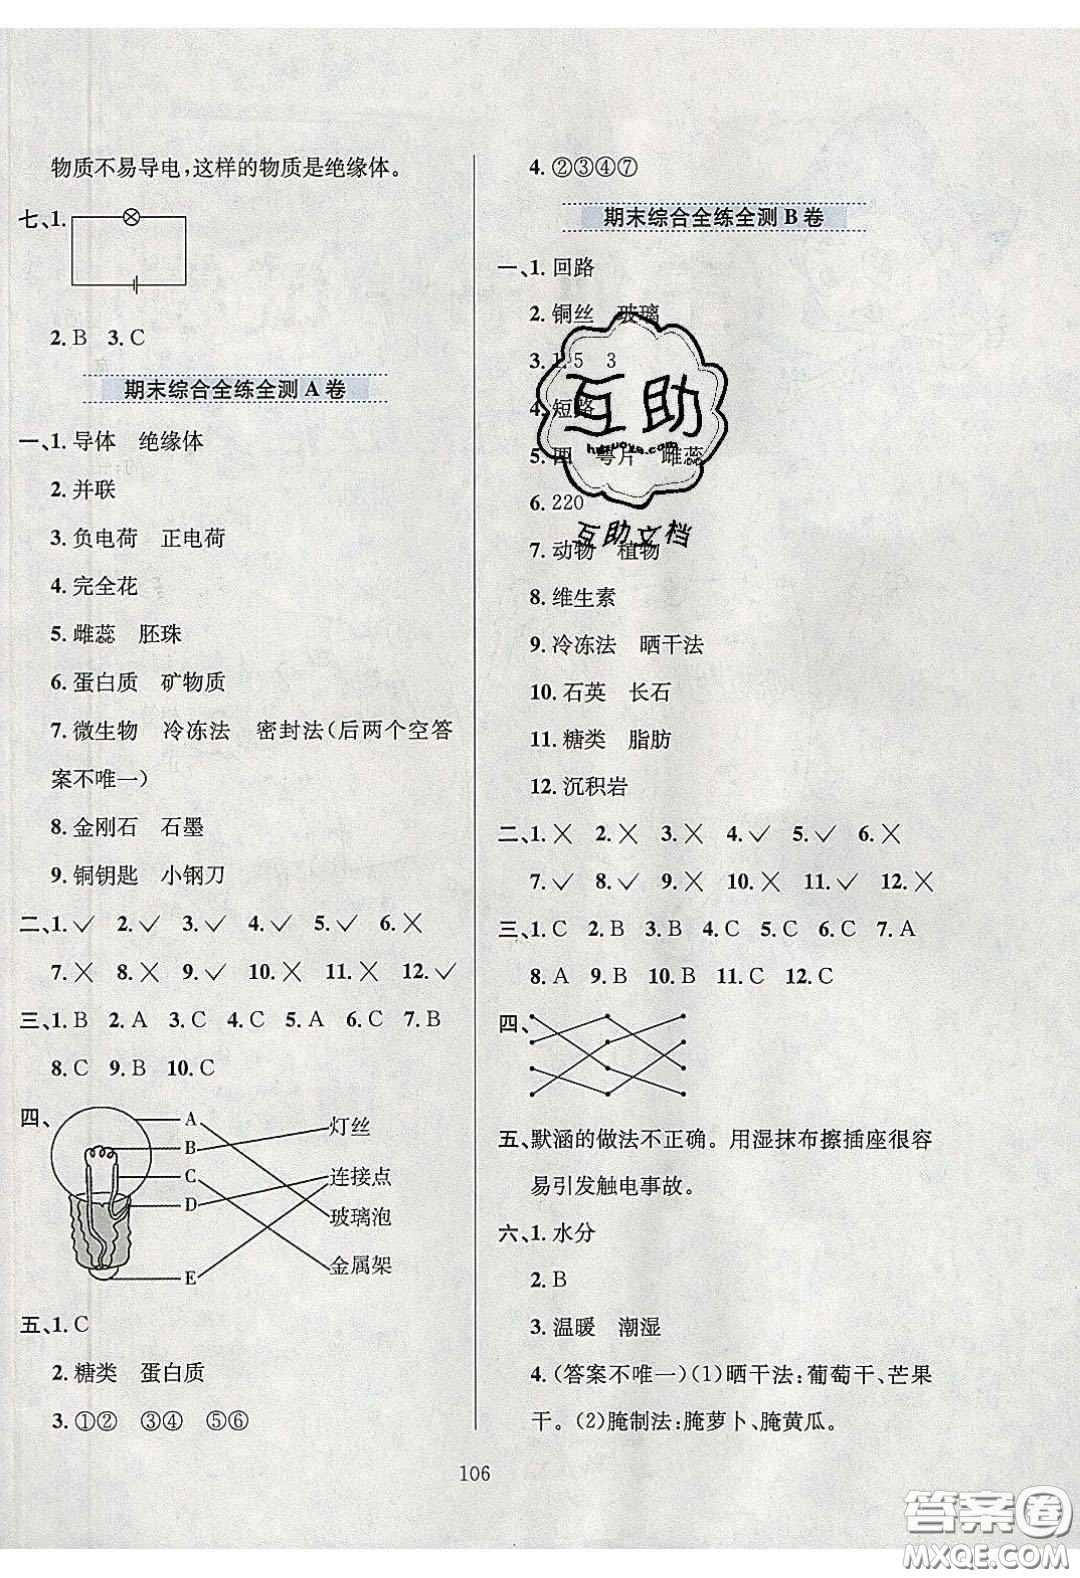 物质不易导电,这样的物质是绝缘体。
七、1.
2. B 3. C
期末综合全练全测 A 卷
一、1. 导体 绝缘体
2. 并联
3. 负电荷 正电荷
4. 完全花
5. 雌蕊 胚珠
6. 蛋白质 矿物质
7. 微生物 冷冻法 密封法(后两个空答
案不唯一)
8. 金刚石 石墨
9. 铜钥匙 小钢刀
二、1. ✓ 2. ✓ 3. ✓ 4. ✓ 5. ✓ 6. ╳
7. ╳ 8. ╳ 9. ✓ 10. ╳ 11. ╳ 12. ✓
三、1. B 2. A 3. C 4. C 5. A 6. C 7. B
8. C 9. B 10. C
四、
A
B
C
D
E
灯丝
连接点
玻璃泡
金属架
五、1. C
2. 糖类 蛋白质
3. ①② ③④ ⑤⑥
4. ②③④⑦
期末综合全练全测 B 卷
一、1. 回路
2. 铜丝 玻璃
3. 1.5 3
4. 短路
5. 四 萼片 雌蕊
6. 220
7. 动物 植物
8. 维生素
9. 冷冻法 晒干法
10. 石英 长石
11. 糖类 脂肪
12. 沉积岩
二、1. ╳ 2. ╳ 3. ╳ 4. ✓ 5. ✓ 6. ╳
7. ✓ 8. ✓ 9. ╳ 10. ╳ 11. ✓ 12. ╳
三、1. C 2. B 3. A 4. C 5. C 6. C 7. A
8. A 9. B 10. B 11. C 12. C
四、
五、默涵的做法不正确。用湿抹布擦插座很容
易引发触电事故。
六、1. 水分
2. B
3. 温暖 潮湿
4. (答案不唯一)(1)晒干法:葡萄干、芒果
干。(2)腌制法:腌萝卜、腌黄瓜。
106
互助
互助文档
答案圈
MXQE.COM